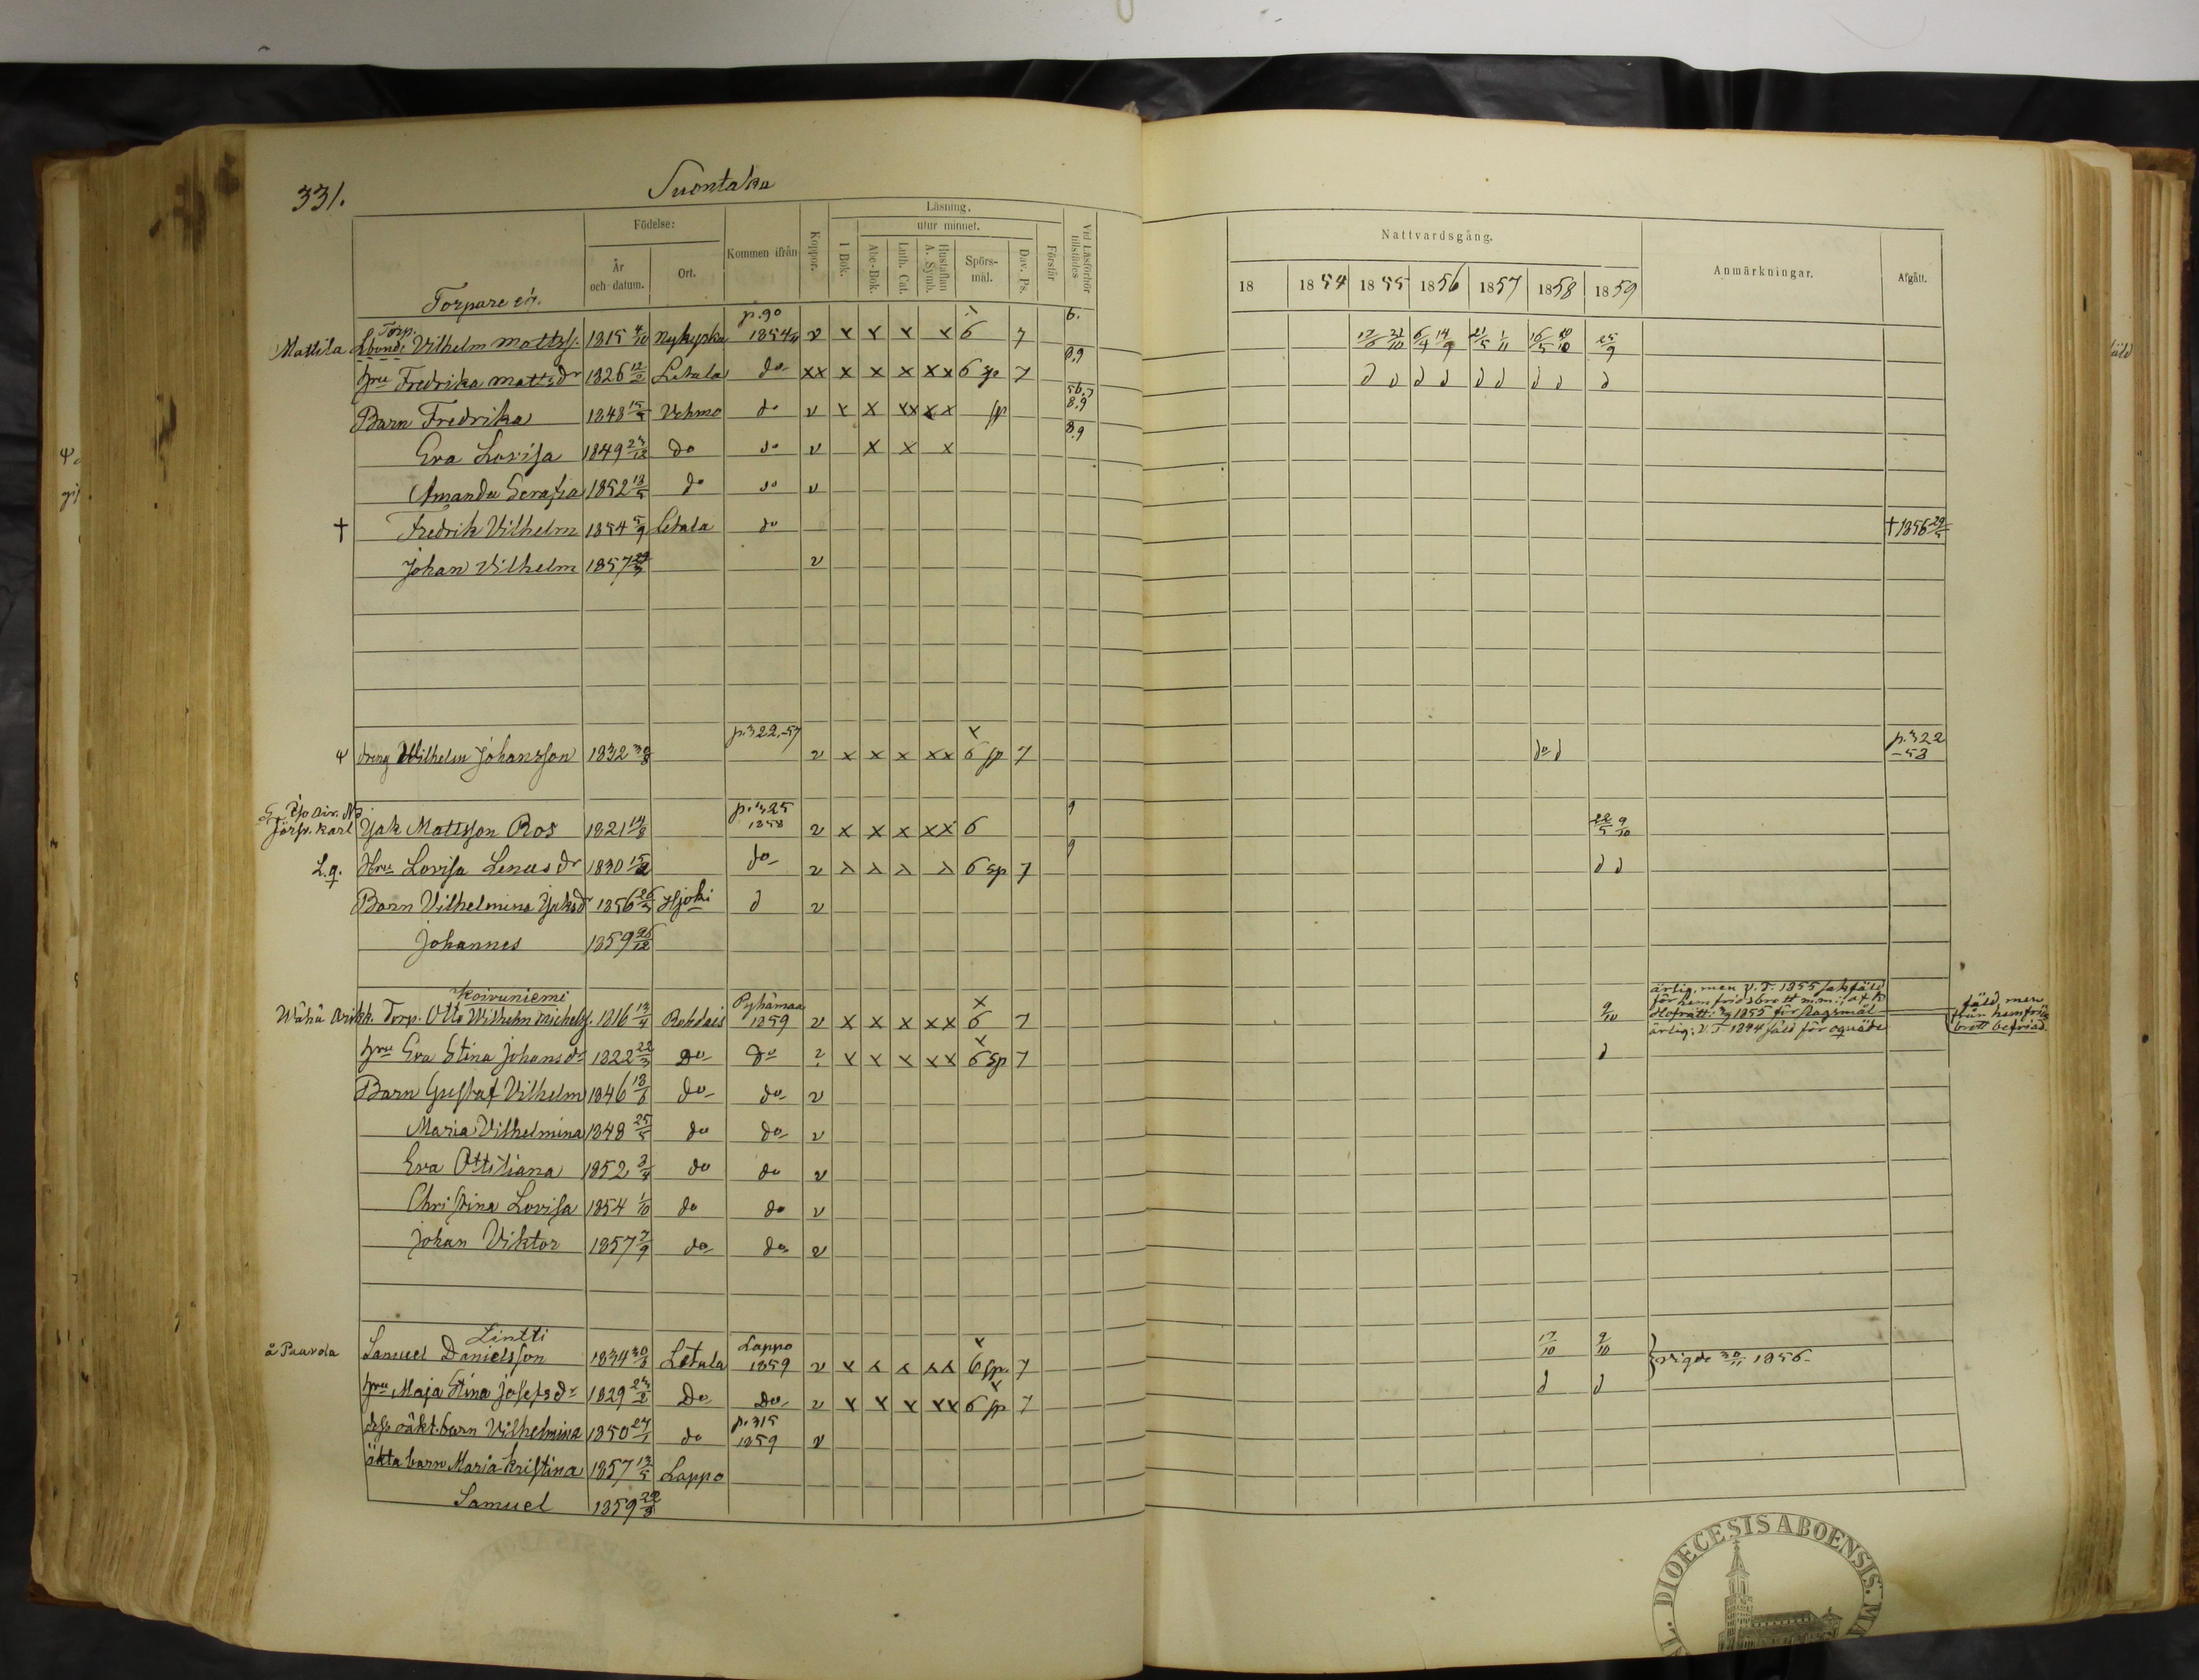 331.
Suontaka
Födelse:
Läsning.
utur minnet.
År och datum.
Ort.
Kommen ifrån
Koppor.
I Bok.
Abc-Bok.
Luth. Cat.
Hustaflan A. Symb.
Spörs-mål.
Dav. Ps.
Förstår
Vid Läsförhör tillstädes
Nattvardsgång.
18 1854 1855 1856 1857 1858 1859
Anmärkningar.
Afgått.
Torpare
p. 90 x 6.
Mattila Torp. Vilhelm Mattss. 1815 4/10 Nykyrka 1854 v x x x x 6 7 6/4 14/9 21/5 1/11 16/5 25/9
hru Fredrika Mattsdr 1826 12/2 Letala do xx x x x xx 6 sp 7 8.9 d d d d d d d d d
Barn Fredrika 1848 Vehmo do v x x xx xx sp 56,7 8.9
Eva Lovisa 1849 23/12 do do v x x x 8.9
Amanda Serafia 1852 do do v
† Fredrik Vilhelm 1854 5/9 Letala do † 1856
Johan Vilhelm 1857 v
p. 322,-57 x p. 322 -58
dreng Wilhelm Johansson 1832 v x x x xx 6 sp 7 do d
p. 325 1858 9
Jak Mattsson Ros 1821 v x x x xx 6 22/5 9/10
L.g. Hru Lovisa Lenasdr 1830 do v x x x x 6 sp 7 9 d d
Barn Vilhelmina Jaksdr 1856 Hjoki d v
Johannes 1859 26/12
Koivuniemi Pyhämaa x
Wähä Torp. Otto Wilhelm Michels. 1816 Rohdais 1859 v x x x xx 6 7 9/10
ärlig, men V.T. 1855 sakfäld
för hemfridsbrott m.m.;
Hofrätt. 1855 för slagsmål
ärlig; V.T 1844 fäld för oqväde
fäld, men
från hemfrids
brott befriad.
hru Eva Stina Johansdr 1822 22/3 Do Do ? x x x xx 6 sp 7 d
Barn Gustaf Vilhelm 1846 do do v
Maria Vilhelmina 1848 25/5 do do v
Eva Ottiliana 1852 do do v
Christina Lovisa 1854 1/10 do do v
Johan Viktor 1857 7/9 do do v
Lintti Lappo x
å Paavola Samuel Danielsson 1834 Letala 1859 v x x x xx 6 sp. 7 17/10 9/10 } vigde 30/11 1856.
hru Maja Stina Josefsdr 1829 Do Do v x x x xx 6 sp 7 d d
dess oäkt. barn Vilhelmina 1850 do p. 315 1859 v
äkta barn Maria Kristina 1857 Lappo
Samuel 1859
DIOECESIS ABOENSIS.